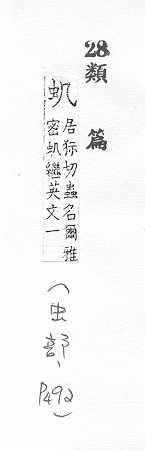 28類篇
虮居狋切蟲名爾雅
密虮繼英文一
(虫部、P492)